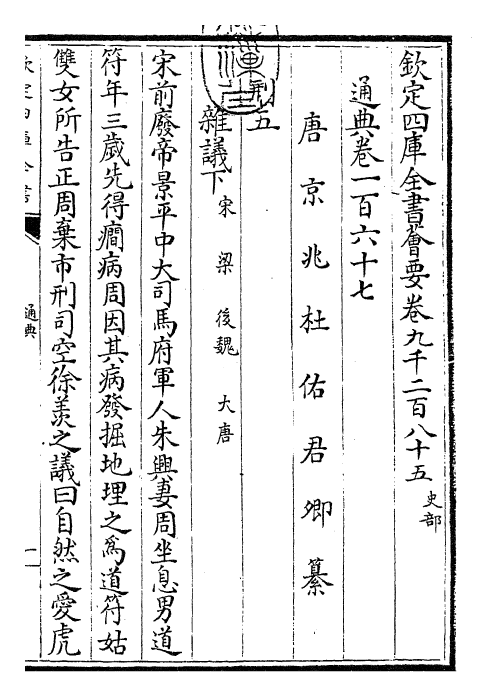 欽定四庫全書薈要卷九千二百八十五 史部
通典卷一百六十七
唐京兆杜佑君卿纂
刑五
雜議下 宋 梁 後魏 大唐
宋前廢帝景平中大司馬府軍人朱興妻周坐息男道
符年三歲先得癇病周因其病發掘地埋之為道符姑
雙女所告正周棄市刑司空徐羨之議曰自然之愛虎
欽定四庫全書
通典
一